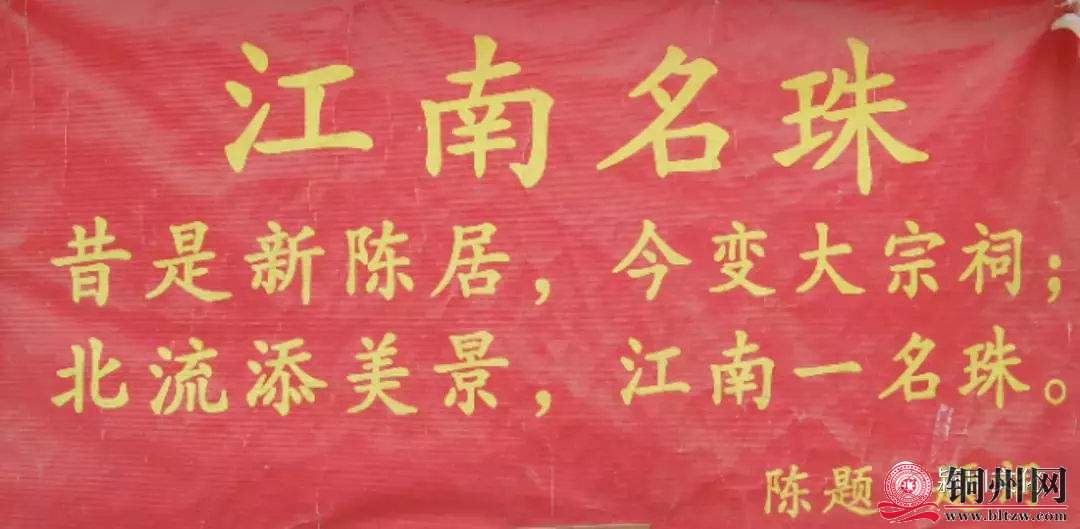 江南名珠
昔是新陈居，今变大宗祠；
北流添美景，江南一名珠。
陈题
铜州网
www.bltzw.com